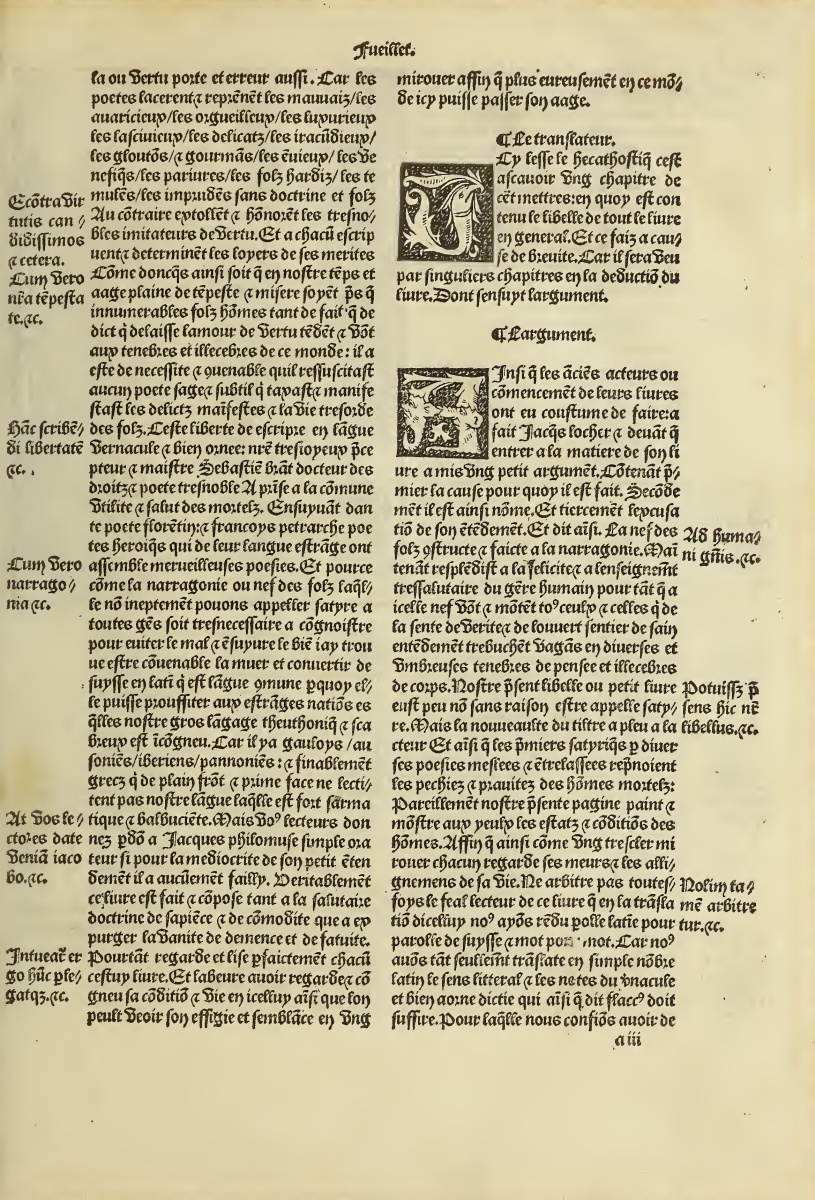 Fueillet.
la ou vertu porte et erreur aussi. Car les
poetes lacerent ⁊ repren̄et les mauuaiz/les
auaricieux/les orgueilleux/les luxurieux
les lasciuieux/les delicatz/les iracūdieux/
les gloutōs/⁊ gourmās/les ēuieux/les ve
nefiqs/les pariures/les folz hardiz/les te
mules/les imprudēs sans doctrine et folz
Au cōtraire extollēt ⁊ hōnorēt les tresno/
bles imitateurs de vertu. Et a chacū escrip
uent⁊ determinēt les loyers de ses merites
Cōme doncqs ainsi soit q̄ en nostre tēps et
aage plaine de tēpeste ⁊ misere soyēt p̄s q̄
innumerables folz hōmes tant de fait q̄ de
dict q̄ delaisse lamour de vertu tēdēt ⁊ vōt
aux tenebres et illecebres de ce monde: il a
este de necessite ⁊ ꝯuenable quil ressuscitast
aucun poete sage⁊ subtil q̄ taxast⁊ manife
stast les delictz maīfestes ⁊ la vie tresorde
des folz. Ceste liberte de escripre en lāgue
vernacule ⁊ bien ornee: nr̄e tresioyeux p̄ce
pteur ⁊ maistre Sebastiē brāt docteur des
droitz⁊ poete tresnoble A prīse a la cōmune
vtilite ⁊ salut des mortelz. Ensuyuāt dan
te poete florētin: ⁊ francoys petrarche poe
tes heroiqs qui de leur langue estrāge ont
assemble merueilleuses poesies. Et pource
cōme la narragonie ou nef des folz laq̄l/
le nō ineptement pouons appeller satyre a
toutes gēs soit tresnecessaire a cōgnoistre
pour euiter le mal ⁊ ēsuyure le biē iay trou
ue estre cōuenable la muer et conuertir de
suysse en latī q̄ est lāgue ꝯmune pquoy el/
le puisse prouffiter aux estrāges natiōs es
q̄lles nostre gros lāgage theuthoniq̄ ⁊ sca
breux est icōgneu. Car il ya gauloys/au
soniēs/iberiens/pannoniēs: ⁊ finablemēt
grecz q̄ de plain frōt ⁊ prime face ne lecti/
tent pas nostre lāgue laq̄lle est fort sarma
tique ⁊ balbuciēte. Mais voꝰ lecteurs don
nez pdō a Jacques philomuse simple ora
teur si pour la mediocrite de son petit ēten
demēt il a aucūemēt failly. Veritablemēt
ce liure est fait ⁊ cōpose tant a la salutaire
doctrine de sapiēce ⁊ de cōmodite que a ex
purger la vanite de demence et de fatuite.
Pourtāt regarde et lise pfaictemēt chacū
cestuy liure. Et labeure auoir regarde⁊ cō
gneu sa cōditiō ⁊ vie en icelluy aīsi que lon
peult veoir son effigie et semblāce en vng
Ecōtra vir
tutis can/
didissimos
⁊ cetera.
Cum vero
nr̄a tēpesta
te.⁊c.
Hāc scribē/
di libertatē
⁊c.
Cum vero
narrago/
nia ⁊c.
At vos le/
ctores date
veniā iaco
bo.⁊c.
Intueat̄ er
go hūc ple/
gatqz.⁊c.
mirouer affin q̄ plus eureusemēt en ce mō/
de icy puisse passer son aage.
¶ Le translateur.
Cy lesse le hecathostiq̄ cest
ascauoir vng chapitre de
cēt mettres: en quoy est con
tenu le libelle de tout le liure
en general. Et ce faiz a cau/
se de breuite. Car il sera veu
par singuliers chapitres en la deductiō du
liure. Dont sensuyt largument.
¶ Largument.
Insi q̄ les āciēs acteurs ou
cōmencemēt de leurs liures
ont eu coustume de faire: a
fait Jacq̄s locher ⁊ deuāt q̄
entrer a la matiere de son li
ure a mis vng petit argumēt. Cōtenāt p̄/
mier la cause pour quoy il est fait. Secōde
mēt il est ainsi nōme. Et tiercemēt lexcusa
tiō de son ētēdemēt. Et dit aīsi. La nef des
folz ꝯstructe⁊ faicte a la narragonie. Maī
tenāt resplēdist a la felicite⁊ a lenseignemt̄
tressalutaire du gēre humain pour tāt q̄ a
icelle nef vōt ⁊ mōtēt toꝰ ceulx ⁊ celles q̄ de
la sente de verite⁊ de louuert sentier de sain
entēdemēt trebuchēt vagās en diuerses et
vmbreuses tenebres de pensee et illecebres
de corps. Nostre p̄sent libelle ou petit liure
eust peu nō sans raison estre appelle saty/
re. Mais la nouueaulte du tiltre a pleu a la
cteur Et aīsi q̄ les p̄miers satyriq̄s p diuer
ses poesies meslees ⁊ ētrelassees rep̄noient
les pechiez ⁊ prauitez des hōmes mortelz:
Pareillemēt nostre p̄sente pagine paint ⁊
mōstre aux yeulx les estatz ⁊ cōditiōs des
hōmes. Affin q̄ ainsi cōme vng trescler mi
rouer chacun regarde ses meurs⁊ les assi/
gnemens de sa vie. Ne arbitre pas toutes/
foys le feal lecteur de ce liure q̄ en la trāsla
tiō dicelluy noꝰ ayōs rēdu polle latie pour
parolle de suysse ⁊ mot pour mot. Car noꝰ
auōs tāt seullemt̄ trāslate en simple nōbre
latin le sens litteral ⁊ les notes du v̄nacule
et bien aorne dictie qui aīsi q̄ dit flaccꝰ doit
suffire. Pour laq̄lle nous confiōs auoir de
Ad huma/
ni gn̄is.⁊c.
Potuissz p̄
sens hic nr̄
libellus.⁊c.
Nolim ta/
mē arbitre
tur.⁊c.
a iii